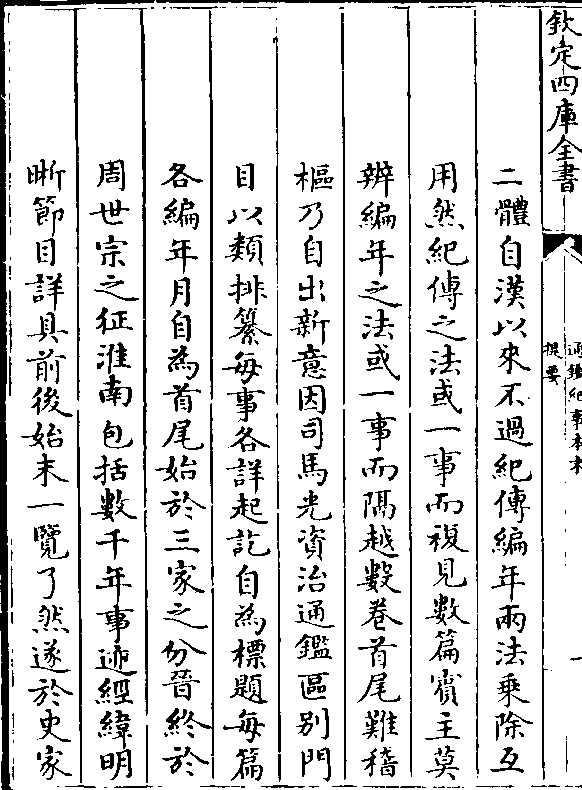 欽定四庫全書
通鑑紀事本末
提要
二體自漢以來不過紀傳編年兩法乗除互
用然紀傳之法或一事而複見數篇賓主莫
辨編年之法或一事而隔越數卷首尾難稽
樞乃自出新意因司馬光資治通鑑區别門
目以類排纂每事各詳起訖自為標題每篇
各編年月自為首尾始於三家之分晉終於
周世宗之征淮南包括數千年事迹經緯明
晰節目詳具前後始末一覽了然遂於史家